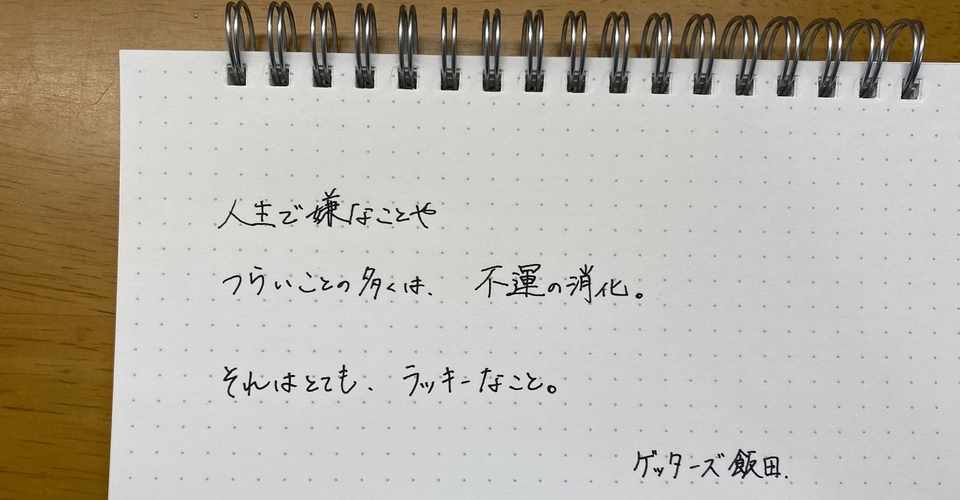 人生で嫌なことや
つらいことの多くは、不運の消化。
それはとても、ラッキーなこと。
ゲッターズ飯田.